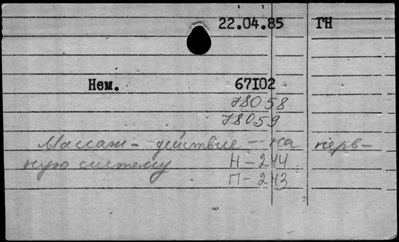 22.04.85 ГН
Нем. 67102
78058
78059
Массаж - действие - на нерв-
ную систему Н-244
П-243